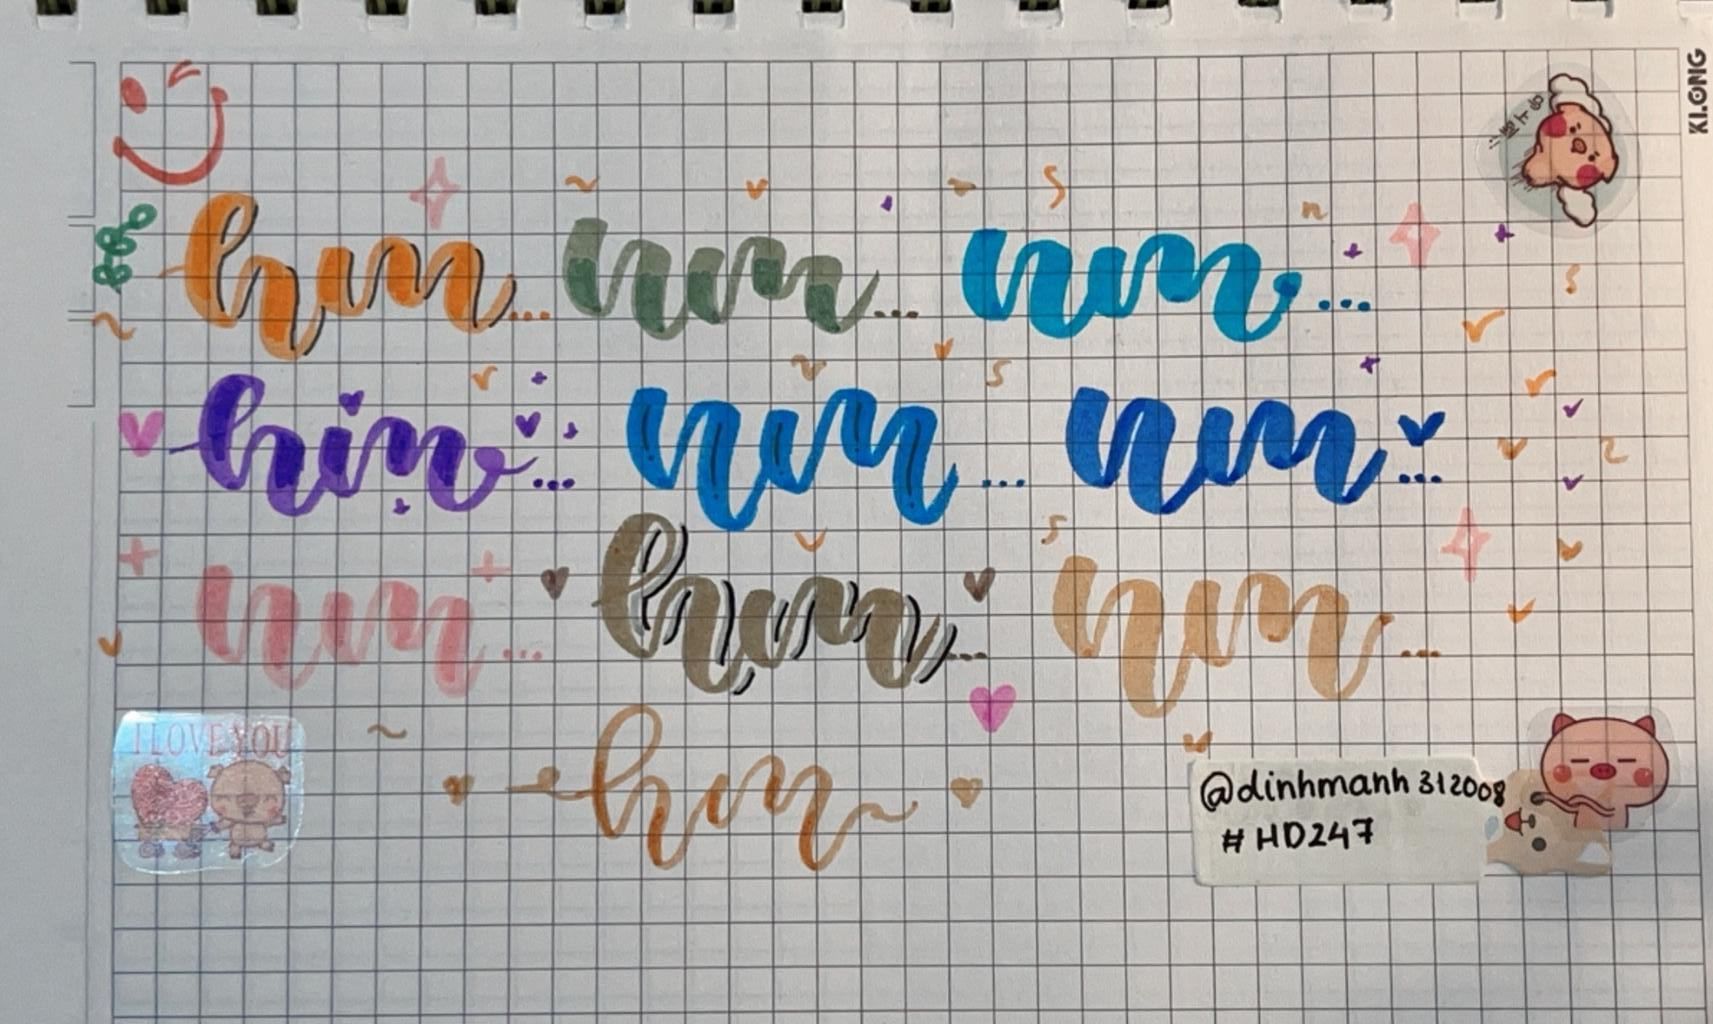 KLONG
hm... hm... hm...
hm... hm... hm...
hm... hm... hm...
hm
I LOVE YOU
@dinhmanh312008
#HD247